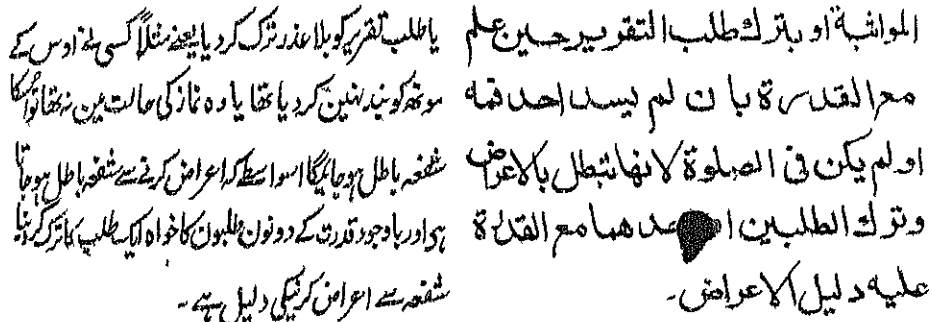 المواثبة او بترك طلب التقرير حين علم
مع القدرة بان لم يسد احد فمه
او لم يكن فى الصلوة لانها تبطل بالاعراض
وترك الطلبين مع القدرة
عليه دليل الاعراض۔
یا طلب تقریر کو بلا عذر ترک کر دیا یعنے مثلاً کسی نے اوس کے
مونھ کو بند نہین کر دیا تھا یا وہ نماز کی حالت مین نہ تھا تو اُسکا
شفعہ باطل ہو جائیگا اسواسطے کہ اعراض کرنے سے شفعہ باطل ہوجاتا
ہی اور باوجود قدرت کے دونون طلبون کا خواہ ایک طلب کا ترک کر دینا
شفعہ سے اعراض کرنیکی دلیل ہے۔